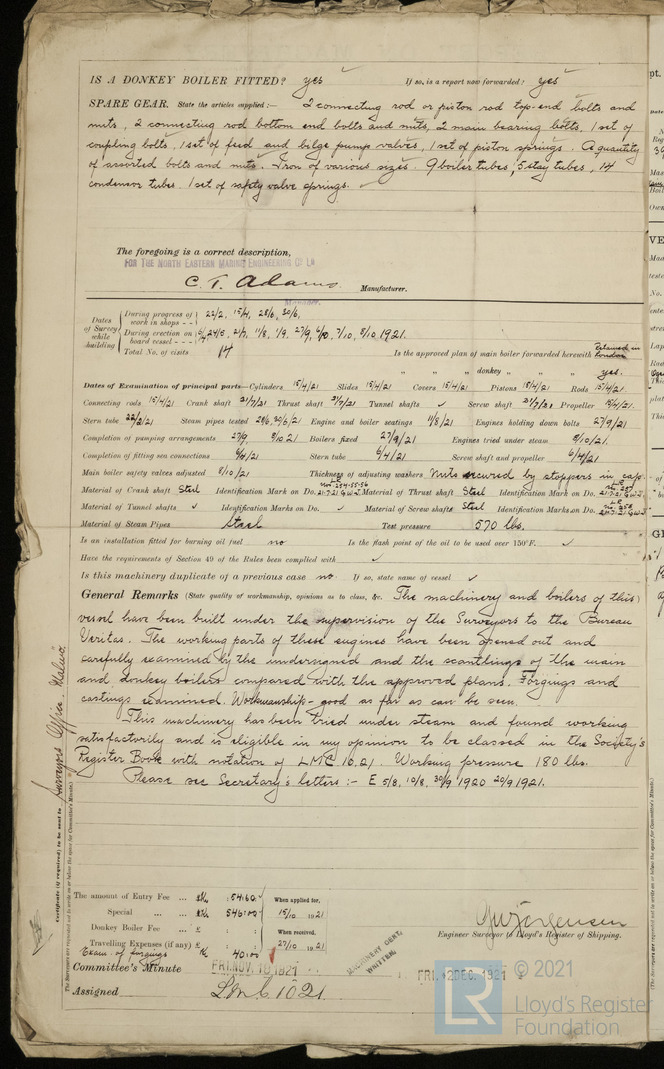 IS A DONKEY BOILER FITTED? yes If so, is a report now forwarded? yes
SPARE GEAR. State the articles supplied:— 2 connecting rod or piston rod top-end bolts and
nuts, 2 connecting rod bottom end bolts and nuts, 2 main bearing bolts, 1 set of
coupling bolts, 1 set of feed and bilge pump valves, 1 set of piston springs. A quantity
of assorted bolts and nuts. Iron of various sizes. 9 boiler tubes, 5 stay tubes, 14
condensor tubes. 1 set of safety valve springs.
The foregoing is a correct description,
FOR THE NORTH EASTERN MARINE ENGINEERING Co Ld
C. T. Adams Manufacturer.
Manager.
Dates of Survey while building
During progress of work in shops - - 22/2, 15/4, 28/6, 30/6,
During erection on board vessel - - - 6/4, 24/5, 21/7, 11/8, 1/9, 27/9, 6/10, 7/10, 8/10 1921.
Total No. of visits 14 Is the approved plan of main boiler forwarded herewith Retained in London
" " " donkey " " " yes.
Dates of Examination of principal parts—Cylinders 15/4/21 Slides 15/4/21 Covers 15/4/21 Pistons 15/4/21 Rods 15/4/21.
Connecting rods 15/4/21 Crank shaft 21/7/21 Thrust shaft 21/7/21 Tunnel shafts ✓ Screw shaft 21/7/21 Propeller 15/4/21.
Stern tube 22/2/21 Steam pipes tested 28/6, 30/6/21 Engine and boiler seatings 11/8/21 Engines holding down bolts 27/9/21
Completion of pumping arrangements 27/9, 8/10 21 Boilers fixed 27/9/21 Engines tried under steam 8/10/21.
Completion of fitting sea connections 6/4/21 Stern tube 6/4/21 Screw shaft and propeller 6/4/21
Main boiler safety valves adjusted 8/10/21 Thickness of adjusting washers Nuts secured by stoppers in cap
Material of Crank shaft Steel Identification Mark on Do. 21.7.21 Material of Thrust shaft Steel Identification Mark on Do. 21.7.21
Material of Tunnel shafts ✓ Identification Marks on Do. ✓ Material of Screw shafts Steel Identification Marks on Do. 21.7.21
Material of Steam Pipes Steel Test pressure 570 lbs.
Is an installation fitted for burning oil fuel no Is the flash point of the oil to be used over 150°F. ✓
Have the requirements of Section 49 of the Rules been complied with ✓
Is this machinery duplicate of a previous case no If so, state name of vessel ✓
General Remarks (State quality of workmanship, opinions as to class, &c. The machinery and boilers of this
vessel have been built under the supervision of the Surveyors to the Bureau
Veritas. The working parts of these engines have been opened out and
carefully examined by the undersigned and the scantlings of the main
and donkey boilers compared with the approved plans. Forgings and
castings examined. Workmanship - good as far as can be seen.
This machinery has been tried under steam and found working
satisfactorily and is eligible in my opinion to be classed in the Society's
Register Book with notation of LMC 10.21. Working pressure 180 lbs.
Please see Secretary's letters :- E 5/8, 10/8, 30/9 1920 20/9 1921.
Certificate (if required) to be sent to Surveyors Office, Malmö
The Surveyors are requested not to write on or below the space for Committee's Minute.
The amount of Entry Fee ... : 54.60 When applied for,
Special ... 546.00 15/10 1921
Donkey Boiler Fee ... £ : : When received,
Travelling Expenses (if any) £ : : 27/10 1921
Exam. of forgings 40.00
Engineer Surveyor to Lloyd's Register of Shipping.
MACHINERY CERT. WRITTEN.
Committee's Minute FRI. NOV. 18 1921 FRI. 2 DEC. 1921
Assigned LMC 10 21
© 2021
LR Lloyd's Register
Foundation